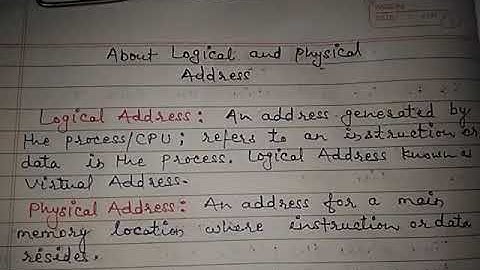 About Logical and physical
Address
Logical Address: An address generated by
the process/CPU; refers to an instruction or
data is the process. Logical Address known a
Virtual Address.
Physical Address: An address for a main
memory location where instruction or data
resides.